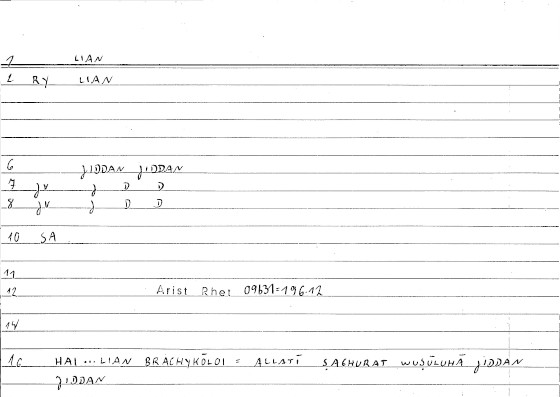 1 LIAN
2 RY LIAN
6 JIDDAN JIDDAN
7 JV J D D
8 JV J D D
10 SA
11
12 Arist Rhet 09b31=196.12
14
16 HAI ... LIAN BRACHYKŌLOI = ALLATĪ ṢAGHURAT WUṢŪLUHĀ JIDDAN
JIDDAN